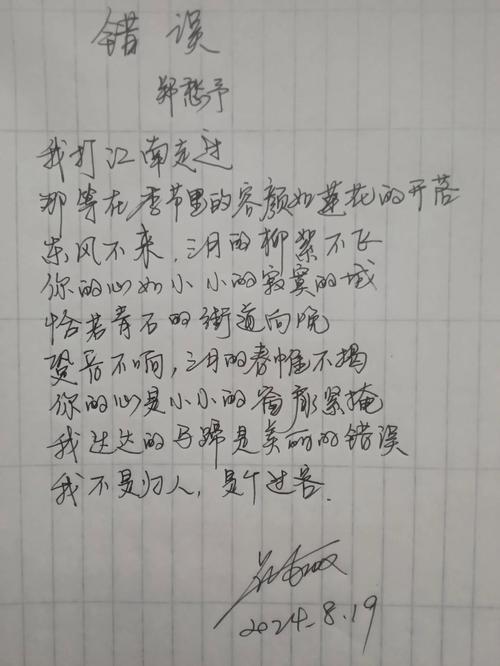 错误
郑愁予
我打江南走过
那等在季节里的容颜如莲花的开落
东风不来,三月的柳絮不飞
你的心如小小的寂寞的城
恰若青石的街道向晚
跫音不响,三月的春帷不揭
你的心是小小的窗扉紧掩
我达达的马蹄是美丽的错误
我不是归人,是个过客.
2024.8.19